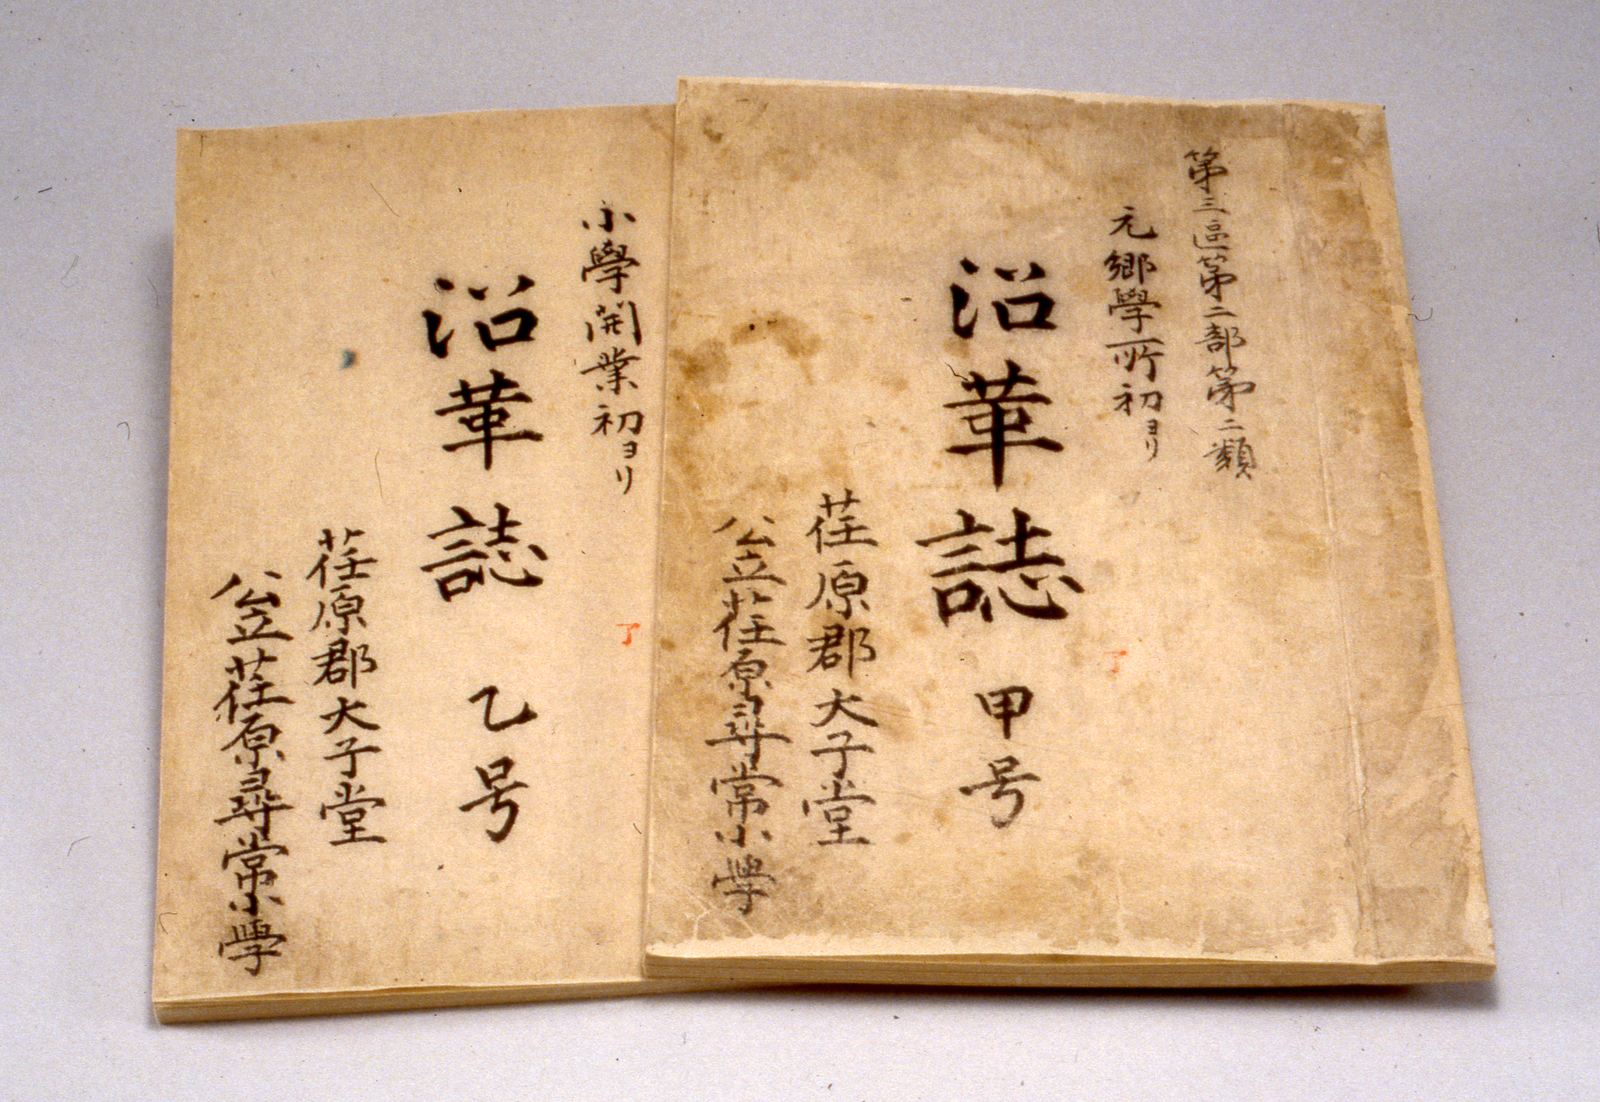 第三區第二部第二類
元鄉學所初ヨリ
沿革誌 甲号
了
荏原郡大子堂
公立荏原尋常小學
小學開業初ヨリ
了
沿革誌 乙号
荏原郡大子堂
公立荏原尋常小學